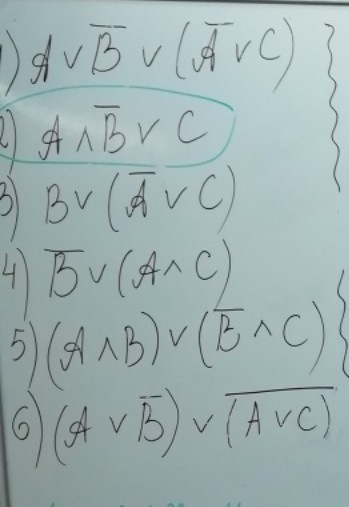 1) A ∨ B̅ ∨ (A̅ ∨ C)
2) A ∧ B̅ ∨ C
3) B ∨ (A̅ ∨ C)
4) B̅ ∨ (A ∧ C)
5) (A ∧ B) ∨ (B̅ ∧ C)
6) (A ∨ B̅) ∨ (̅A̅ ̅∨̅ ̅C̅)̅